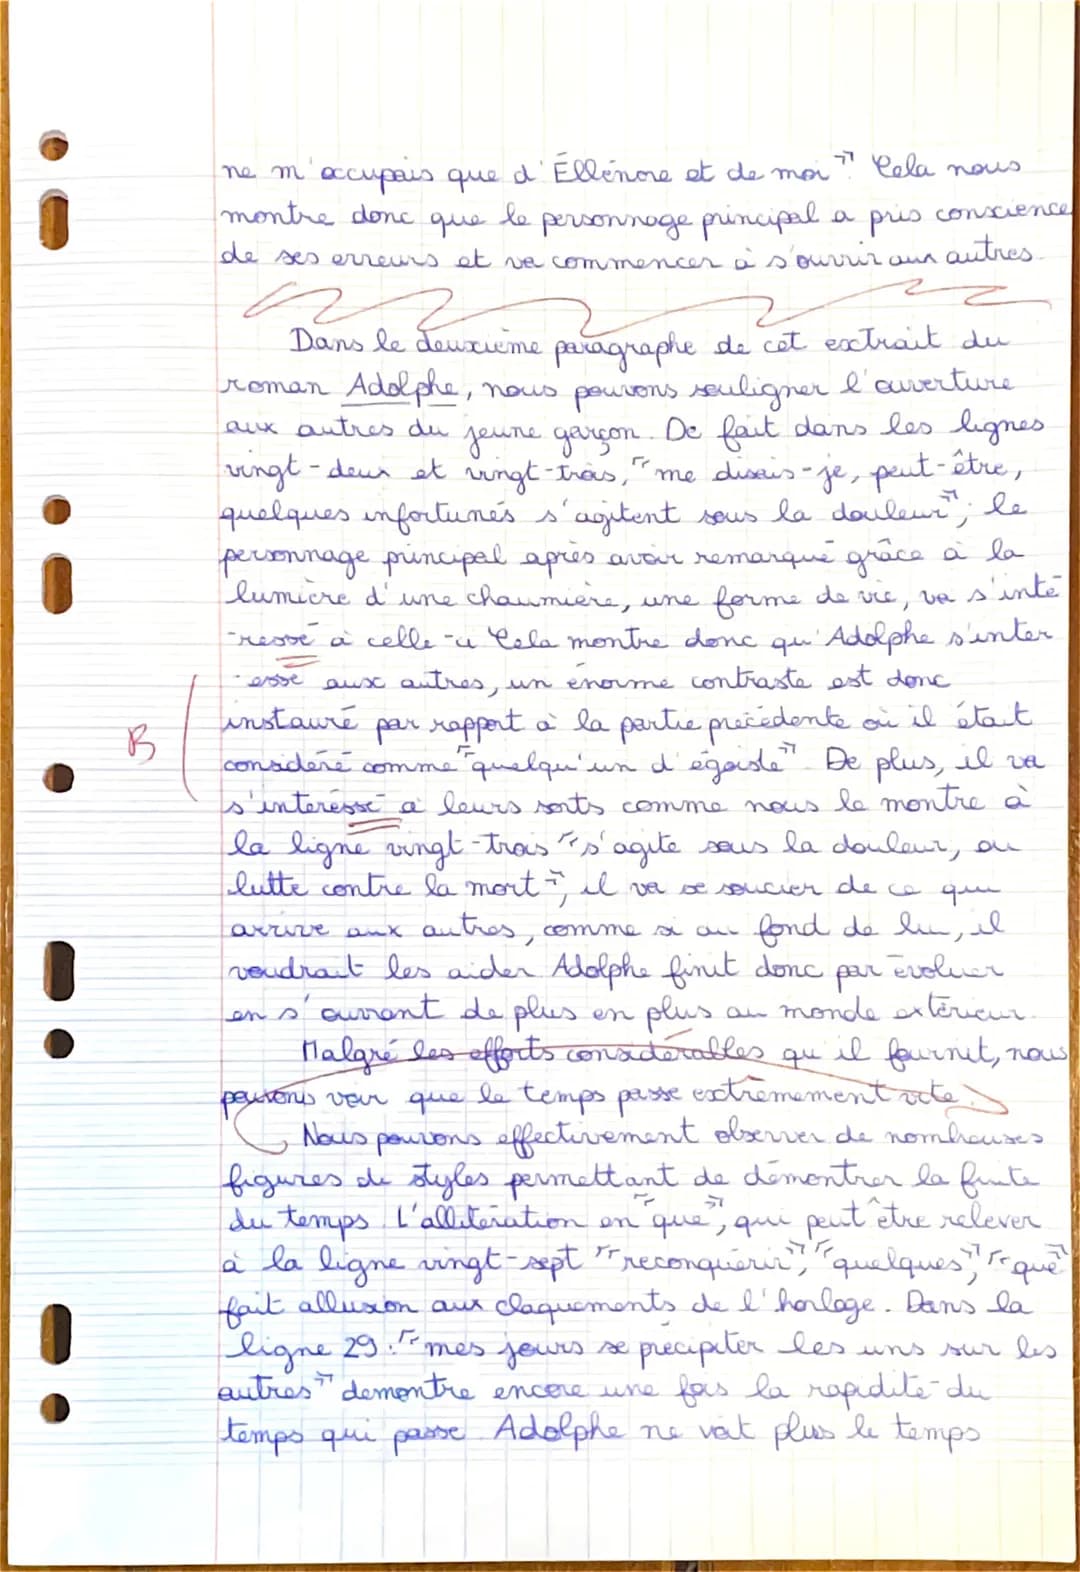 ne m'occupais que d'Éllénore et de moi". Cela nous
montre donc que le personnage principal a pris conscience
de ses erreurs et va commencer à s'ouvrir aux autres.
Dans le deuxième paragraphe de cet extrait du
roman Adolphe, nous pouvons souligner l'ouverture
aux autres du jeune garçon. De fait dans les lignes
vingt-deux et vingt-trois, "me disais-je, peut-être,
quelques infortunés s'agitent sous la douleur", le
personnage principal après avoir remarqué grâce à la
lumière d'une chaumière, une forme de vie, va s'inté
-ressé à celle-ci Cela montre donc qu'Adolphe s'inter
-esse aux autres, un énorme contraste est donc
B
instauré par rapport à la partie précédente où il était
considéré comme "quelqu'un d'égoïste". De plus, il va
s'interéssé à leurs sorts comme nous le montre à
la ligne vingt-trois "s'agite sous la douleur, ou
lutte contre la mort", il va se soucier de ce qui
arrive aux autres, comme si au fond de lui, il
voudrait les aider Adolphe finit donc par évoluer
en s'ouvrant de plus en plus au monde extérieur.
Malgré les efforts considérables qu'il fournit, nous
pouvons voir que le temps passe extrêmement vite.
Nous pouvons effectivement observer de nombreuses
figures de styles permettant de démontrer la fuite
du temps. L'allitération en "que", qui peut être relever
à la ligne vingt-sept "reconquérir", "quelques", "que"
fait allusion aux claquements de l'horloge. Dans la
ligne 29 : "mes jours se précipiter les uns sur les
autres" démontre encore une fois la rapidité du
temps qui passe. Adolphe ne voit plus le temps